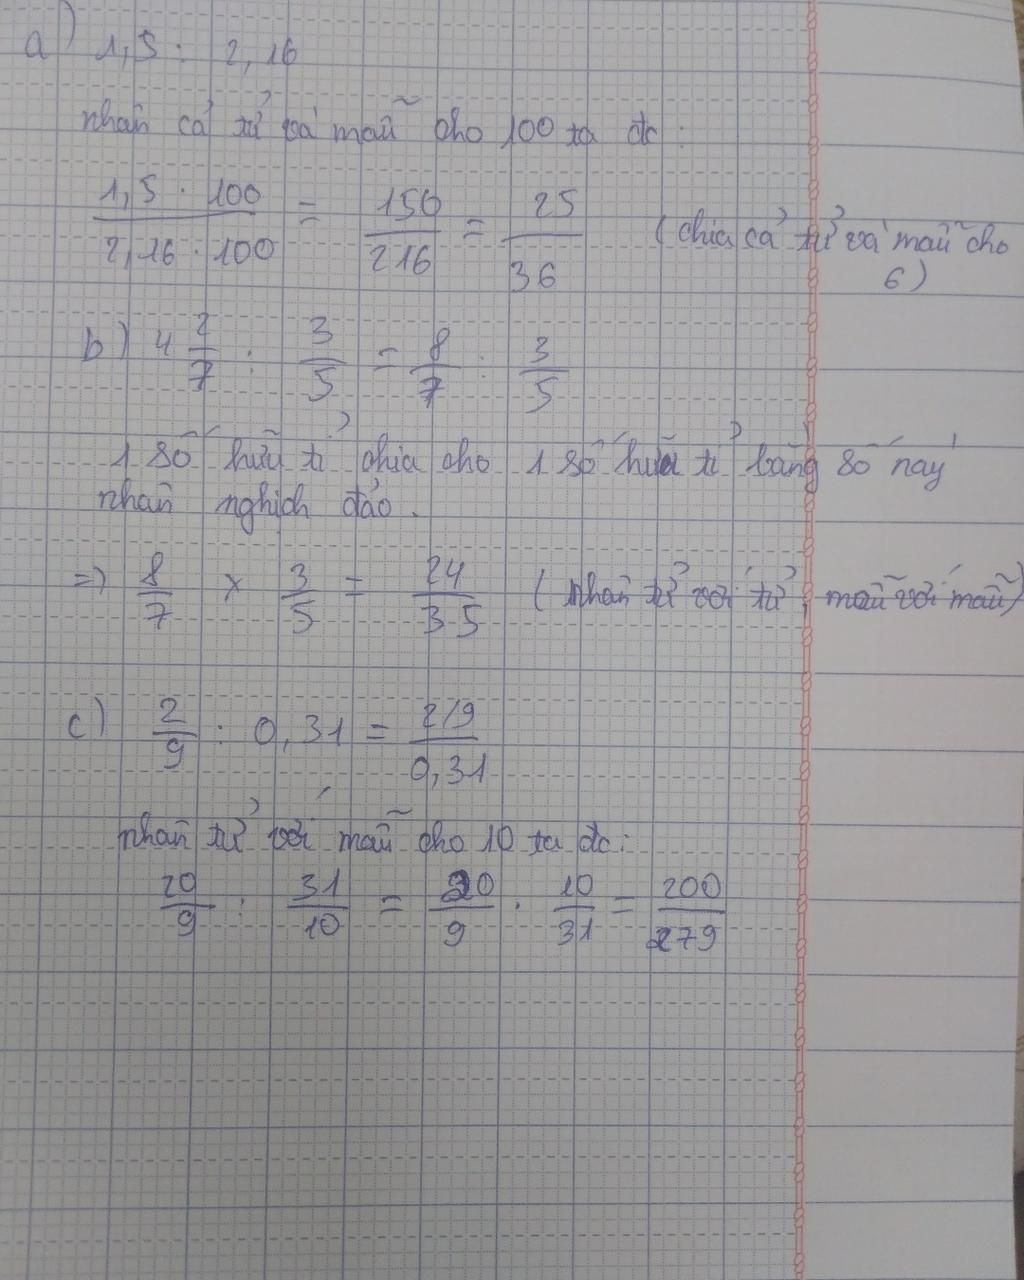 a) 1,5 : 2,16
nhân cả tử và mẫu cho 100 ta đc :
1,5 . 100 / 2,16 . 100 = 150 / 216 = 25 / 36 (chia cả tử và mẫu cho 6)
b) 4 2/7 : 3/5 = 8/7 : 3/5
1 số hữu tỉ chia cho 1 số hữu tỉ bằng số này
nhân nghịch đảo.
=> 8/7 x 3/5 = 24/35 (nhân tử với tử, mẫu với mẫu)
c) 2/9 : 0,31 = 2/9 / 0,31
nhân tử với mẫu cho 10 ta đc :
20/9 : 31/10 = 20/9 . 10/31 = 200/279